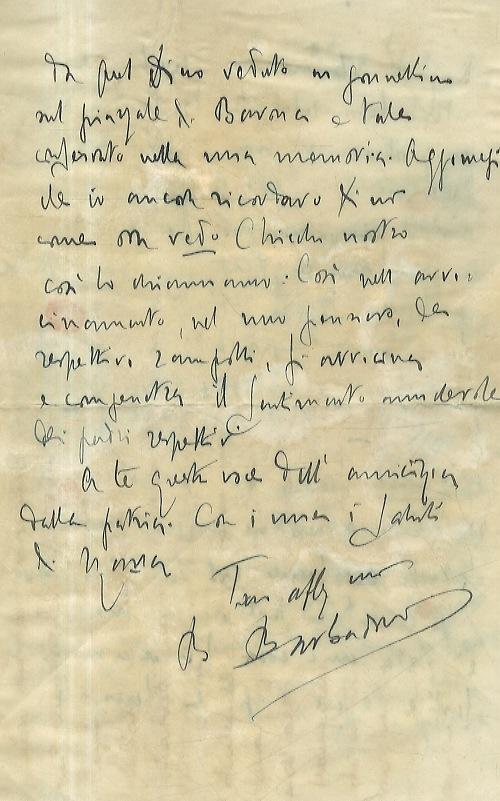 da quel Dino veduto in gonnellino
sul piazzale di Barona e tale
conservato nella mia memoria. Aggiungi
che io ancora ricordavo Dino
come ora vedo Checchi nostro
così lo chiamiamo. Così nell'avvi-
cinamento, nel mio pensiero, dei
rispettivi rampolli, si avvicina
e compenetra il sentimento amichevole
dei padri rispettivi
A te questa voce dell'amicizia
dalla patria. Con i miei i saluti
di Nanna
Tuo aff. mo
B Barbadoro